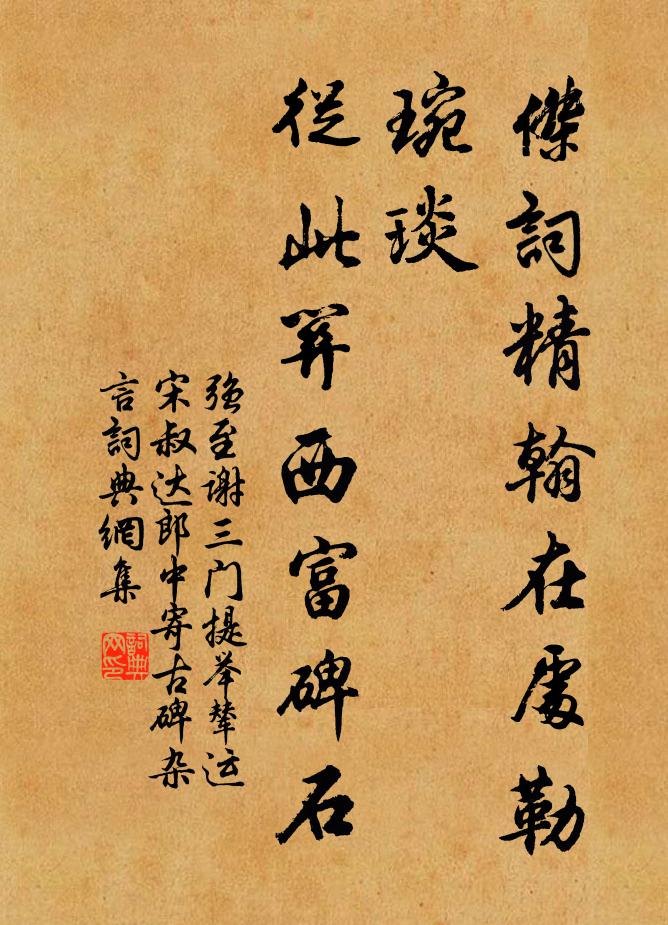 傑詞精翰在處勒
琬琰
從此關西富碑石
强至谢三门提举辇运
宋叔达郎中寄古碑杂
言詞典網集
詞典網印